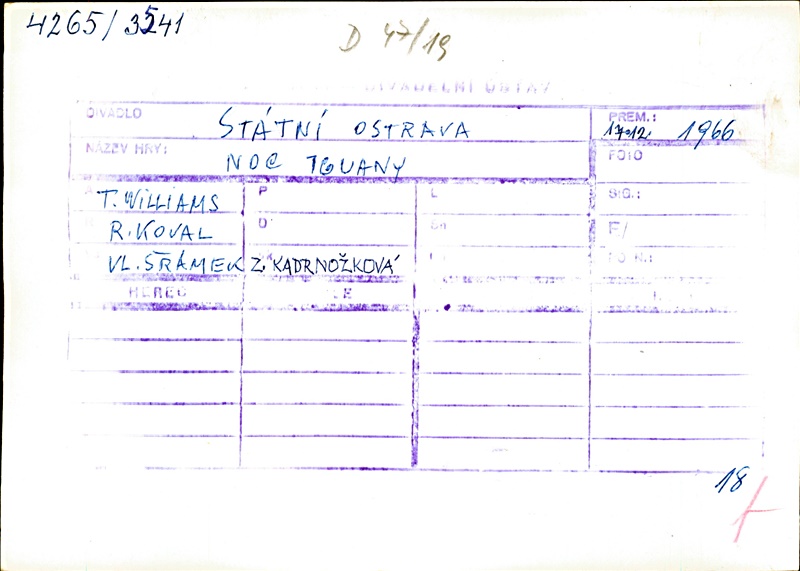 4265/3541
D 47/19
DIVADELNÍ ÚSTAV
DIVADLO STÁTNÍ OSTRAVA PREM.: 17.12. 1966
NÁZEV HRY: NOC IGUANY FOTO
A T. WILLIAMS P L SIG.:
R. KOVAL D F/
VL. ŠRÁMEK Z. KADRNOŽKOVÁ
HEREC
18